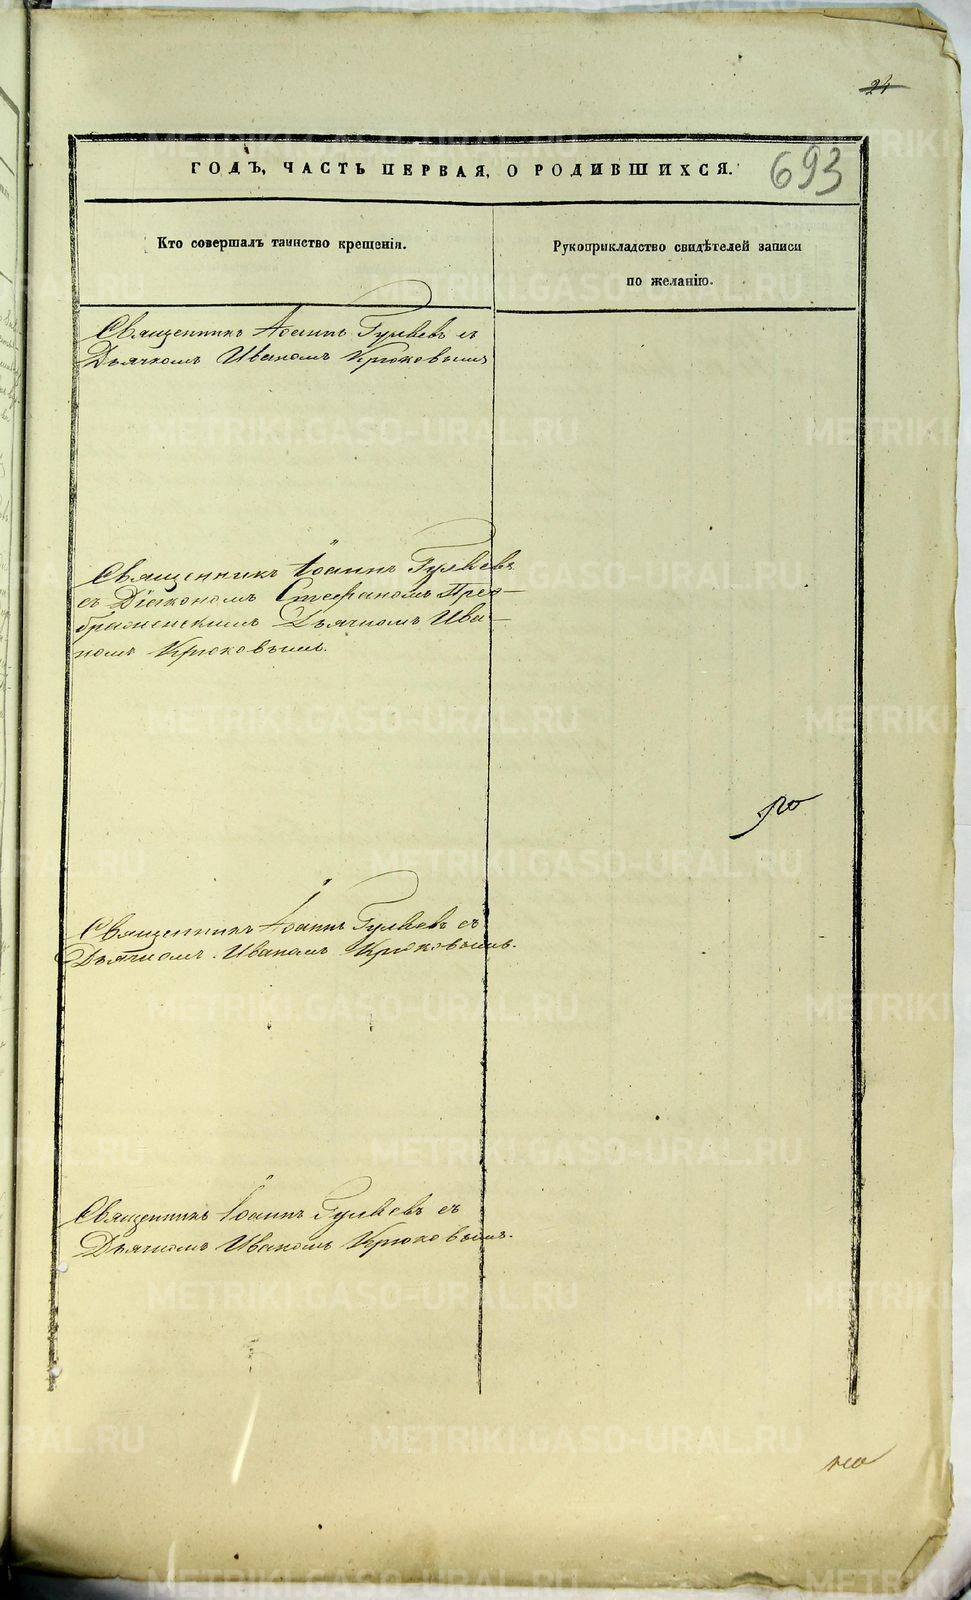 24
ГОДЪ, ЧАСТЬ ПЕРВАЯ, О РОДИВШИХСЯ.
693
Кто совершалъ таинство крещенія.
Рукоприкладство свидѣтелей записи
по желанію.
Священникъ Іоаннъ Гуляевъ съ
Дьячкомъ Иваномъ Крюковымъ
Священникъ Іоаннъ Гуляевъ
съ Діакономъ Стефаномъ Прео-
браженскимъ Дьячкомъ Ива-
номъ Крюковымъ.
Священникъ Іоаннъ Гуляевъ съ
Дьячкомъ Иваномъ Крюковымъ.
Священникъ Іоаннъ Гуляевъ съ
Дьячкомъ Иваномъ Крюковымъ.
METRIKI.GASO-URAL.RU